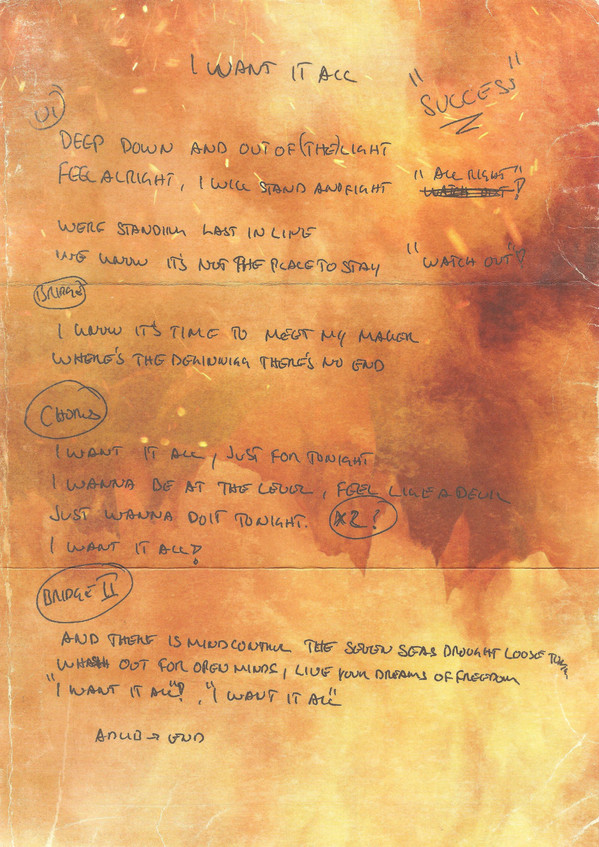 I WANT IT ALL
"SUCCESS"
V1
DEEP DOWN AND OUT OF (THE) LIGHT
FEEL ALRIGHT, I WILL STAND AND FIGHT "ALL RIGHT"
WATCH OUT!
WERE STANDING LAST IN LINE
WE KNOW IT'S NOT THE PLACE TO STAY "WATCH OUT"!
BRIDGE
I KNOW IT'S TIME TO MEET MY MAKER
WHERE'S THE BEGINNING THERE'S NO END
CHORUS
I WANT IT ALL, JUST FOR TONIGHT
I WANNA BE AT THE LEVEL, FEEL LIKE A DEVIL
JUST WANNA DO IT TONIGHT. X2?
I WANT IT ALL!
BRIDGE II
AND THERE IS MINDCONTROL THE SEVEN SEAS BROUGHT LOOSE
OUT FOR OPEN MINDS, LIVE YOUR DREAMS OF FREEDOM
"I WANT IT ALL"!, "I WANT IT ALL"
ADLIB → END